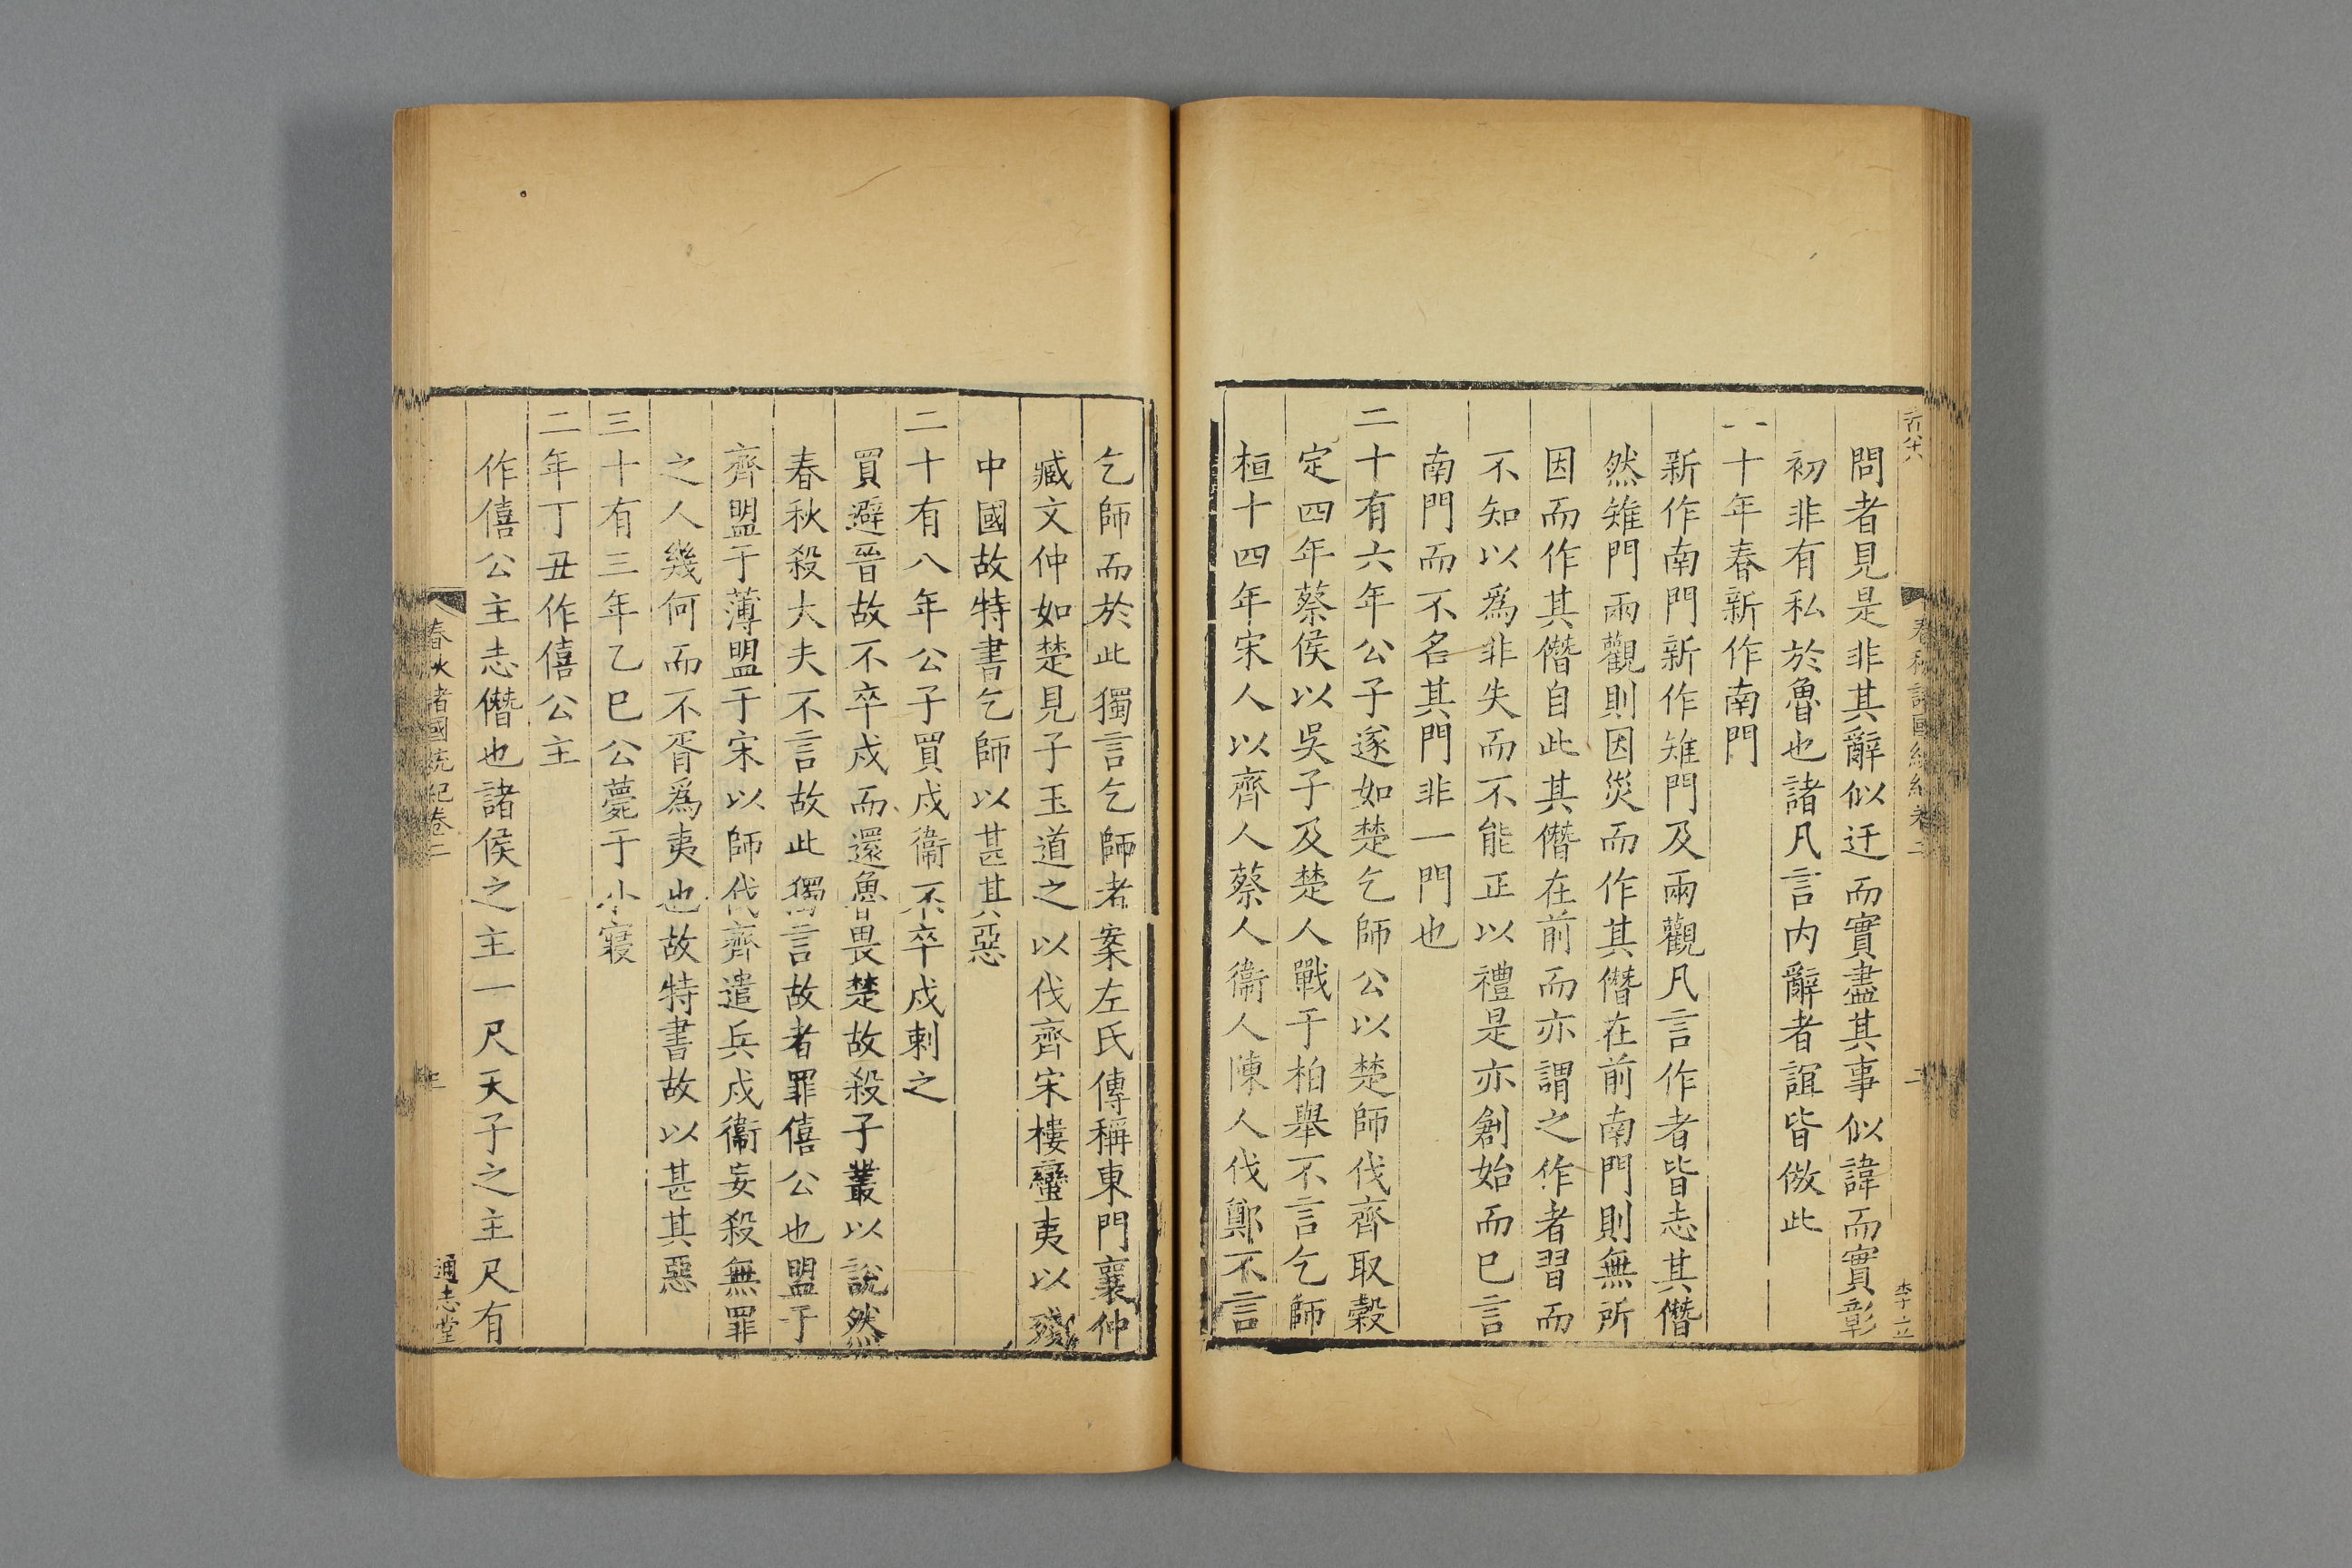 問者見是非其辭似迂而實盡其事似諱而實彰
初非有私於魯也諸凡言内辭者誼皆倣此
二十年春新作南門
新作南門新作雉門及兩觀凡言作者皆志其僭
然雉門兩觀則因災而作其僭在前南門則無所
因而作其僭自此其僭在前而亦謂之作者習而
不知以爲非失而不能正以禮是亦創始而已言
南門而不名其門非一門也
二十有六年公子遂如楚乞師公以楚師伐齊取穀
定四年蔡侯以吳子及楚人戰于柏舉不言乞師
桓十四年宋人以齊人蔡人衞人陳人伐鄭不言
乞師而於此獨言乞師者案左氏傳稱東門襄仲
臧文仲如楚見子玉道之以伐齊宋樓蠻夷以殘
中國故特書乞師以甚其惡
二十有八年公子買戍衞不卒戍刺之
買避晉故不卒戍而還魯畏楚故殺子叢以說然
春秋殺大夫不言故此獨言故者罪僖公也盟于
齊盟于薄盟于宋以師伐齊遣兵戍衞妄殺無罪
之人幾何而不胥爲夷也故特書故以甚其惡
三十有三年乙巳公薨于小寢
二年丁丑作僖公主
作僖公主志僭也諸侯之主一尺天子之主尺有
春秋諸國統紀卷二
通志堂
春秋諸國統紀卷二
二
李立